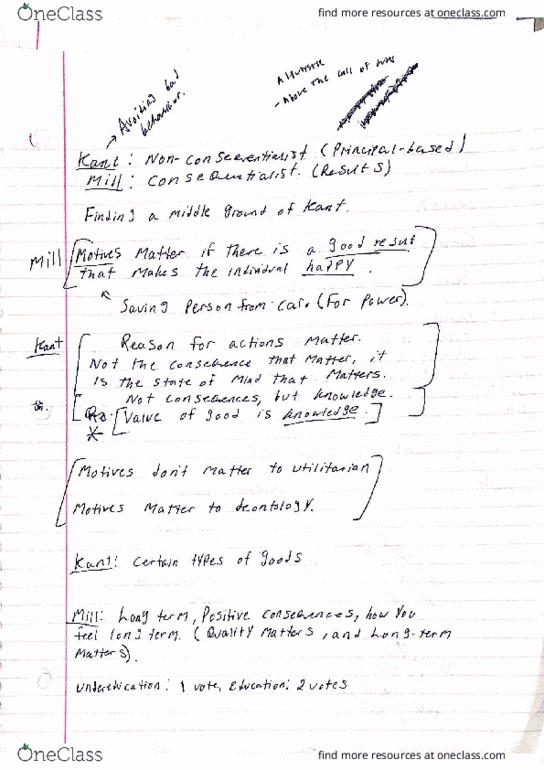 OneClass
find more resources at oneclass.com
Altruistic
- Above the call of duty
Avoiding bad
behaviour.
Kant: Non-consequentialist (Principal-based)
Mill: Consequentialist. (Results)
Finding a middle ground of Kant.
Mill [Motives Matter if there is a good result
that makes the individual happy.]
Saving Person from car. (For power).
Kant [Reason for actions Matter.
Not the consequence that Matter, it
is the state of Mind that Matters.
Not consequences, but knowledge.
[Value of good is knowledge.]
[Motives don't Matter to utilitarian
Motives Matter to deontology.]
Kant: Certain types of goods
Mill: Long term, Positive consequences, how you
feel long term. (Quality Matters, and Long-term
Matters).
Undereducation: 1 vote, Education: 2 votes
OneClass
find more resources at oneclass.com